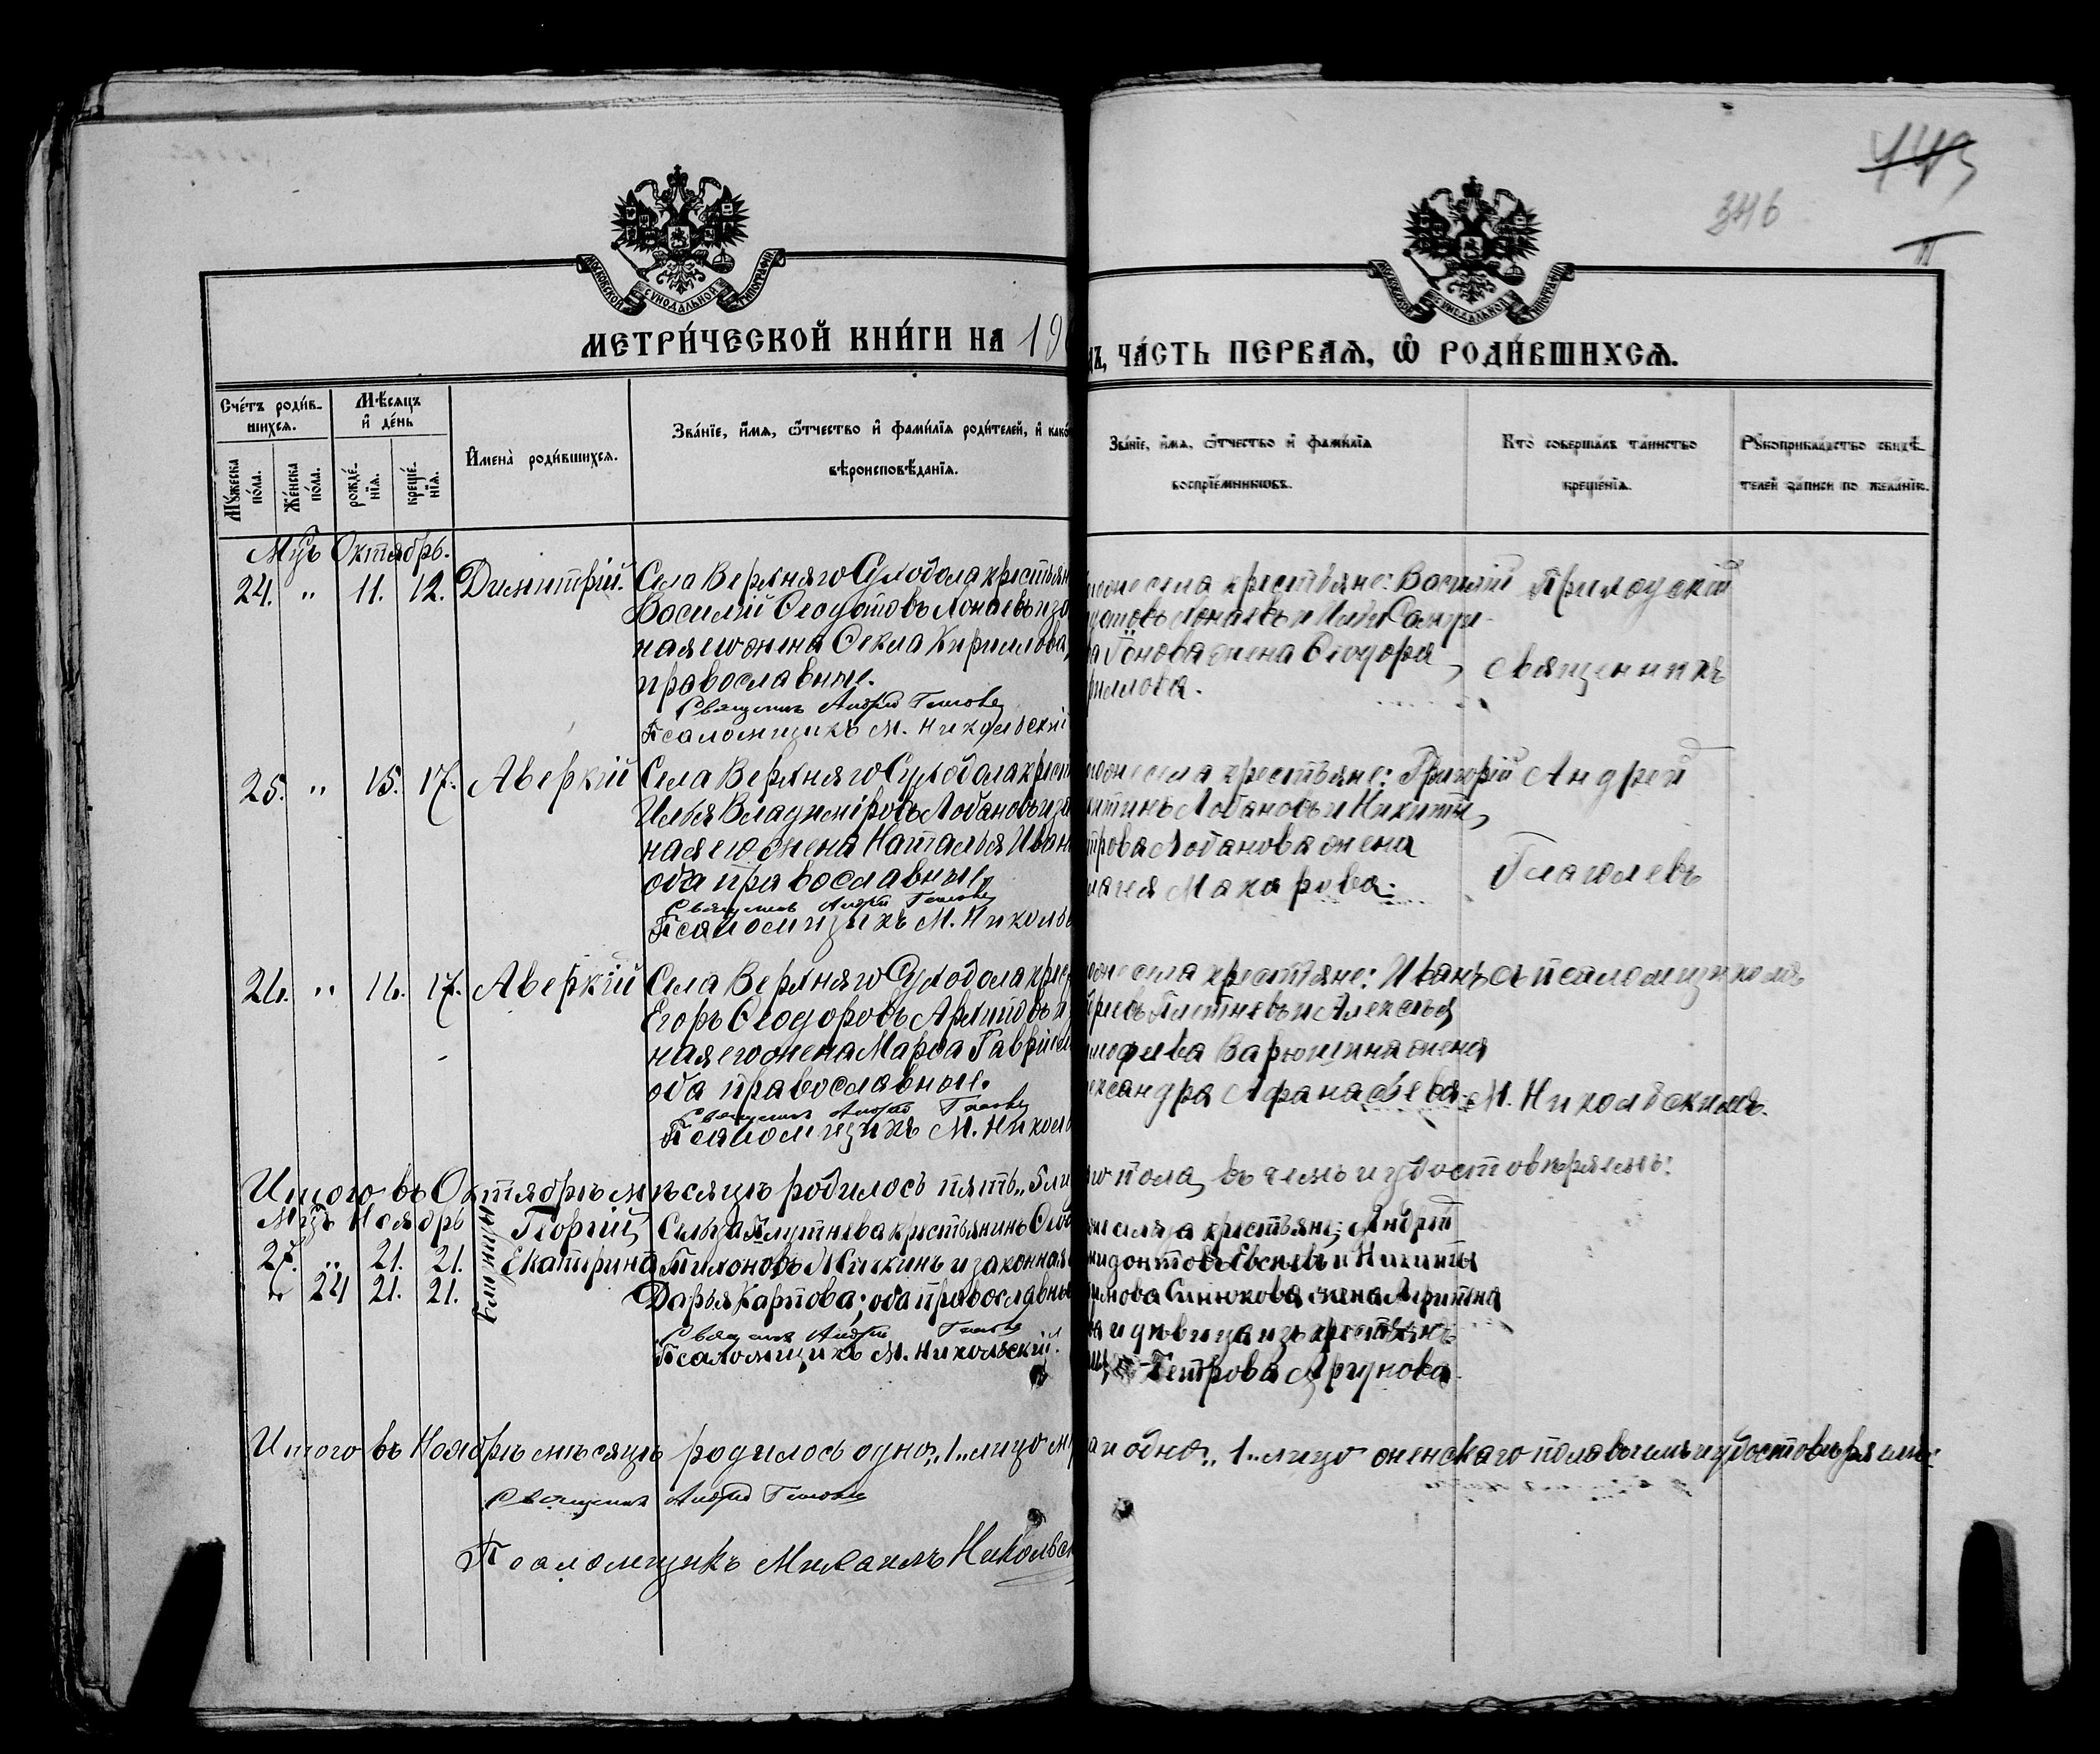 443
346
П
МОСКОВСКОЙ СѴНОДАЛЬНОЙ ТИПОГРАФІИ
МОСКОВСКОЙ СѴНОДАЛЬНОЙ ТИПОГРАФІИ
МЕТРИ́ЧЕСКОЙ КНИ́ГИ НА 19
ЧА́СТЬ ПЕРВАѦ, Ѡ҆ РОДИ́ВШИХСѦ.
Сче́тъ роди́в-
шихсѧ.
Мꙋ́жеска по́ла.
Же́нска по́ла.
Мѣ́сѧцъ
и҆ де́нь
рожде́-
нїѧ.
креще́-
нїѧ.
И҆мена̀ роди́вшихсѧ.
Зва́нїе, и҆́мѧ, ѻ҆́тчество и҆ фами́лїѧ роди́телей, и҆ како
вѣроисповѣ́данїѧ.
Зва́нїе, и҆́мѧ, ѻ҆́тчество и҆ фами́лїѧ
воспрїе́мниковъ.
Кто̀ соверша́лъ та́инство
креще́нїѧ.
Рꙋкоприкла́дство свидѣ́-
телей за́писи по жела́нїю.
Мцъ Октябрь.
24. " 11. 12. Димитрій. Села Верхняго Суходола крестьян
Василій Ѳеодотовъ Лонаевъ и зако
ная его жена Ѳекла Кириллова,
православные.
Священникъ Андрей Глаголевъ
Псаломщикъ М. Никольскій
села крестьяне: Василій
Лонаевъ и
жена Ѳеодора
Приходскій
священникъ
25. " 15. 17. Аверкій Села Верхняго Суходола крест
Илья Владиміровъ Лобановъ и зак
ная его жена Наталья Иван
оба православные,
Священникъ Андрей Глаголевъ
Псаломщикъ М. Никольс
села крестьяне: Григорій
Лобановъ и Никиты
Лобанова жена
Макарова.
Андрей
Глаголевъ
26. " 16. 17. Аверкій Села Верхняго Суходола крес
Егоръ Ѳеодоровъ Архиповъ и
ная его жена Марѳа Гавріил
оба православные.
Священникъ Андрей Глаголевъ
Псаломщикъ М. Николь
села крестьяне: Иванъ
Плетневъ и Алексѣя
Варюшина жена
Афанасьева
съ псаломщикомъ
М. Никольскимъ.
Итого въ Октябрѣ мѣсяцѣ родилось пять
пола, въ чемъ и удостовѣряемъ:
Мцъ Ноябрь
27. " 21. 21. Георгій
" 24 21. 21. Екатерина
близнецы
Сельца Плутнева крестьянинъ Ѳео
Тихоновъ и законная
Дарья Карпова; оба православны
Священникъ Андрей Глаголевъ
Псаломщикъ М. Никольскій.
крестьяне: Андрей
Евсѣевъ и Никиты
Синюкова жена
и дѣвица изъ крестьянъ
Петрова Аргунова
Итого въ Ноябрѣ мѣсяцѣ родилось одно "1" лицо м
и одно "1" лицо женскаго пола въ чемъ и удостовѣряемъ:
Священникъ Андрей Глаголевъ
Псаломщикъ Михаилъ Никольск